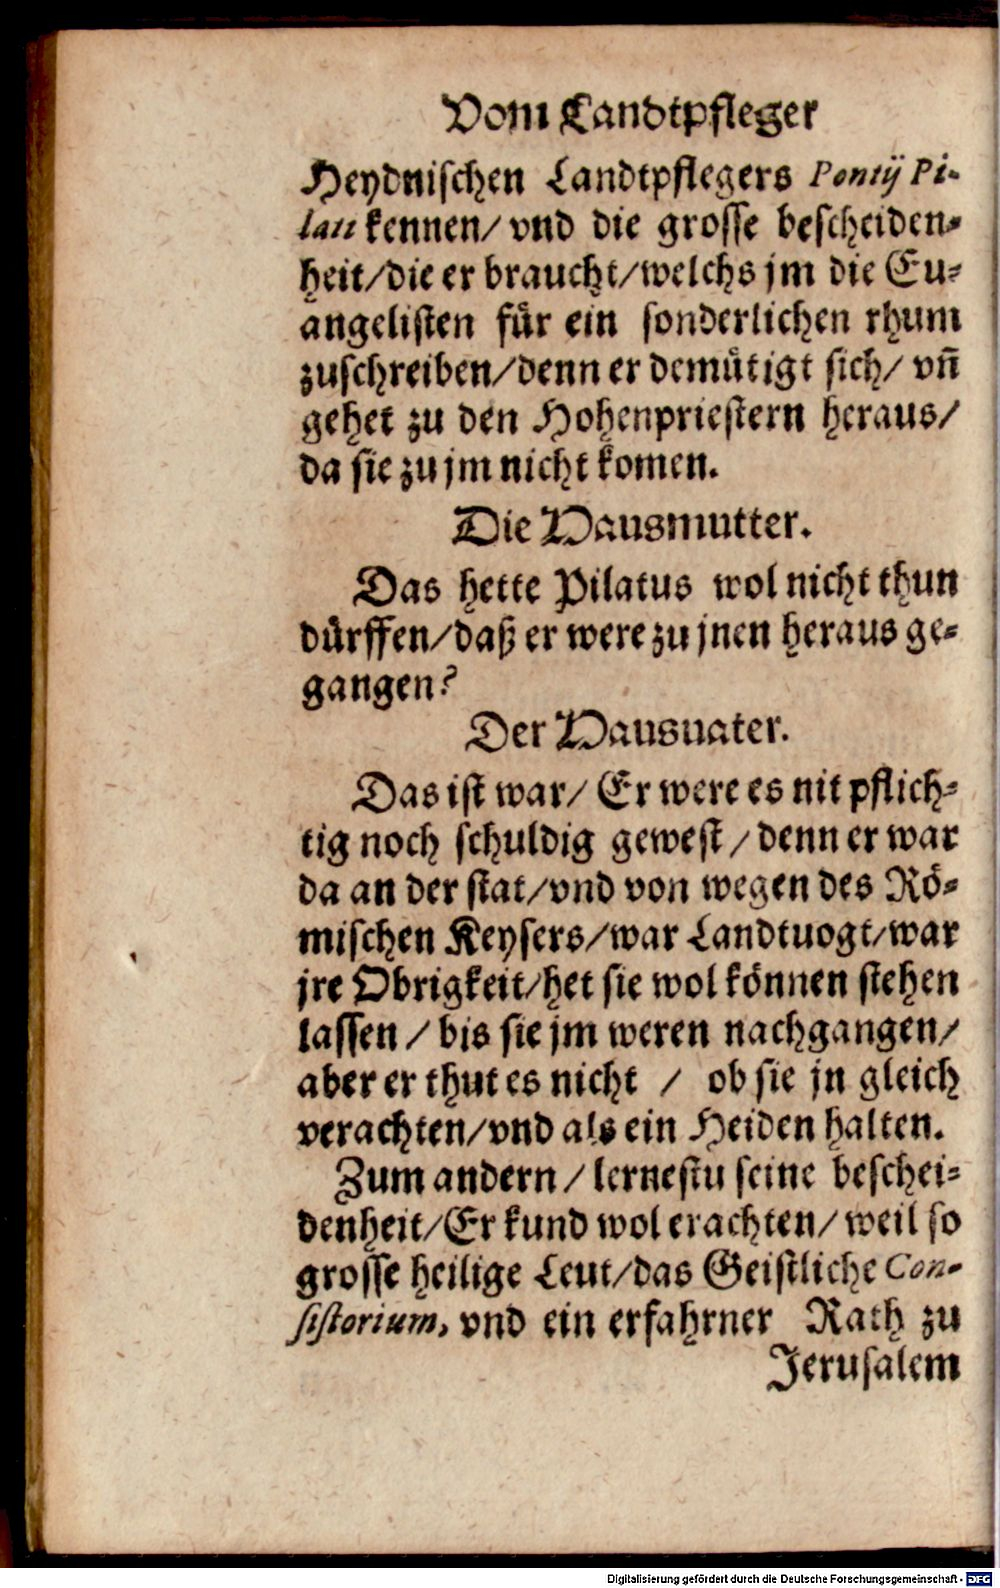 Vom Landtpfleger
Heydnischen Landtpflegers Pontij Pi-
lati kennen/ vnd die grosse bescheiden-
heit/die er braucht/welchs jm die Eu-
angelisten für ein sonderlichen rhum
zuschreiben/denn er demütigt sich/ vñ
gehet zu den Hohenpriestern heraus/
da sie zu jm nicht komen.
Die Hausmutter.
Das hette Pilatus wol nicht thun
dürffen/daß er were zu jnen heraus ge-
gangen?
Der Hausuater.
Das ist war/ Er were es nit pflich-
tig noch schuldig gewest / denn er war
da an der stat/vnd von wegen des Rö-
mischen Keysers/war Landtuogt/war
jre Obrigkeit/het sie wol können stehen
lassen / bis sie jm weren nachgangen/
aber er thut es nicht / ob sie jn gleich
verachten/vnd als ein Heiden halten.
Zum andern / lernestu seine beschei-
denheit/Er kund wol erachten/ weil so
grosse heilige Leut/das Geistliche Con-
sistorium, vnd ein erfahrner Rath zu
Jerusalem
Digitalisierung gefördert durch die Deutsche Forschungsgemeinschaft - DFG